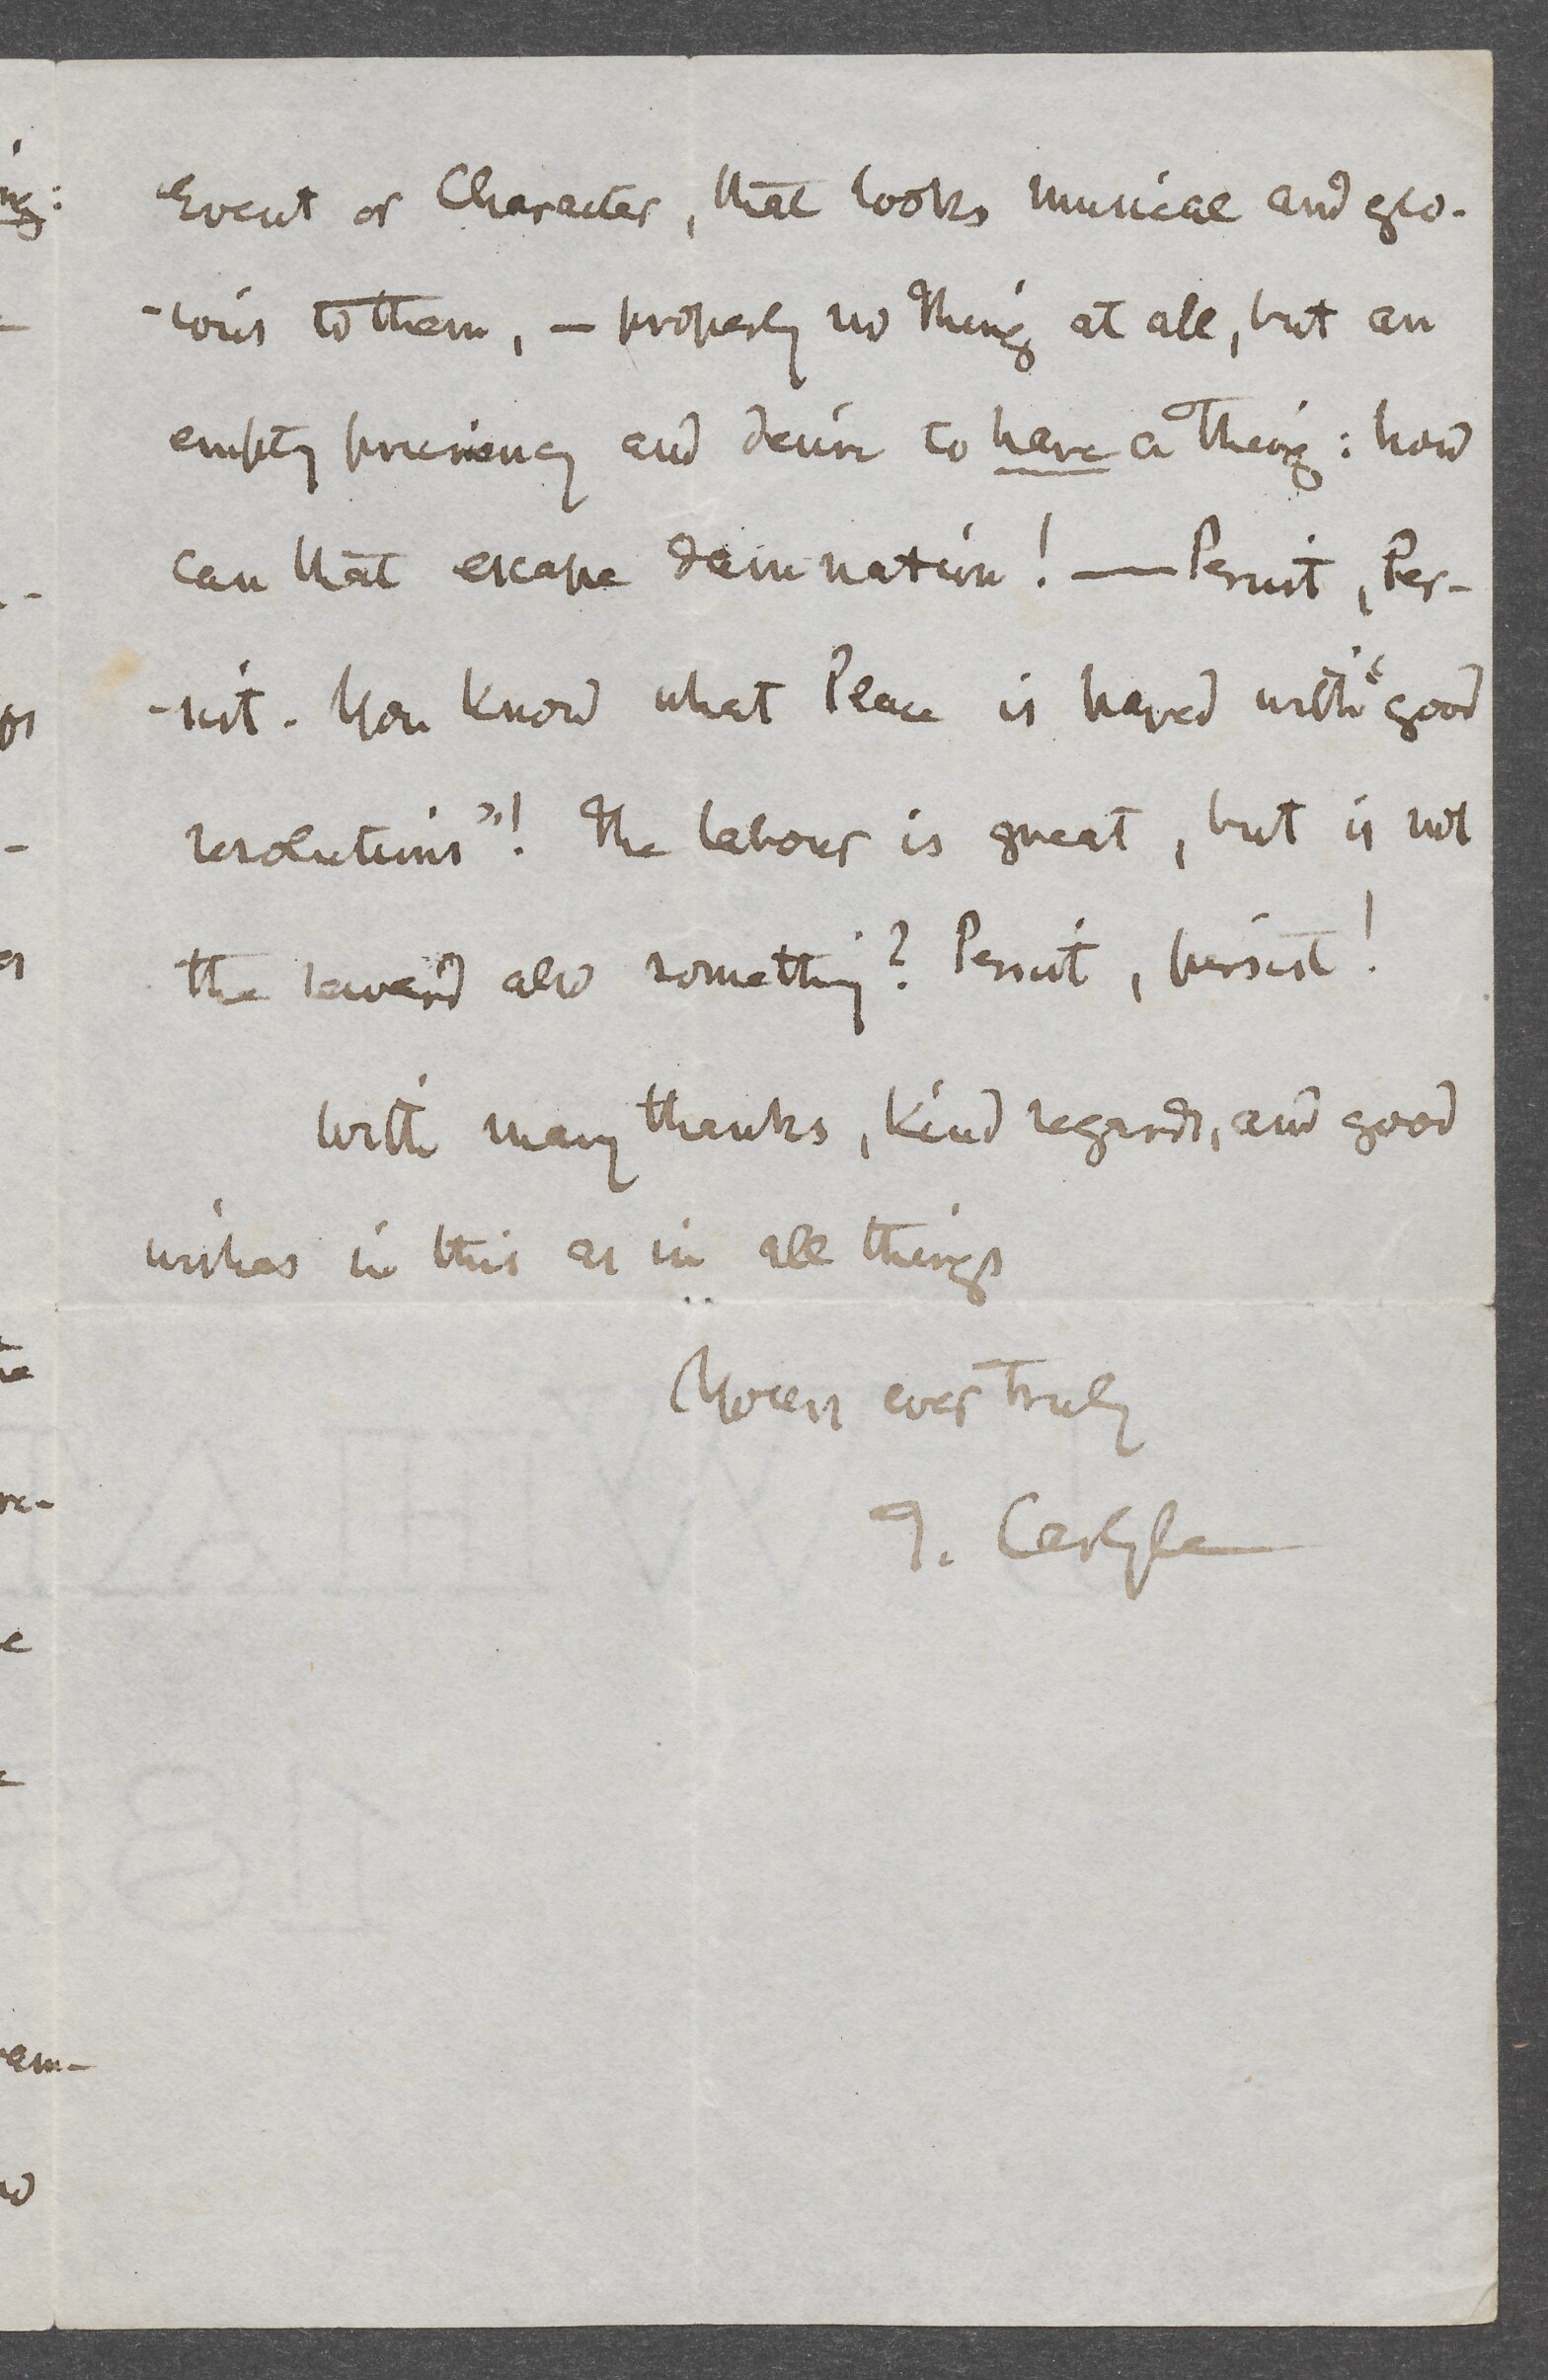 Event or Character, that looks musical and glo-
-rious to them, — properly no Thing at all, but an
empty pruriency and desire to have a Thing: how
can that escape damnation! — Persist, Per-
-sist. You know what Place is paved with "good
resolutions"! The labour is great, but is not
the reward also something? Persist, persist!
With many thanks, kind regards, and good
wishes in this as in all things
Yours ever truly
T. Carlyle